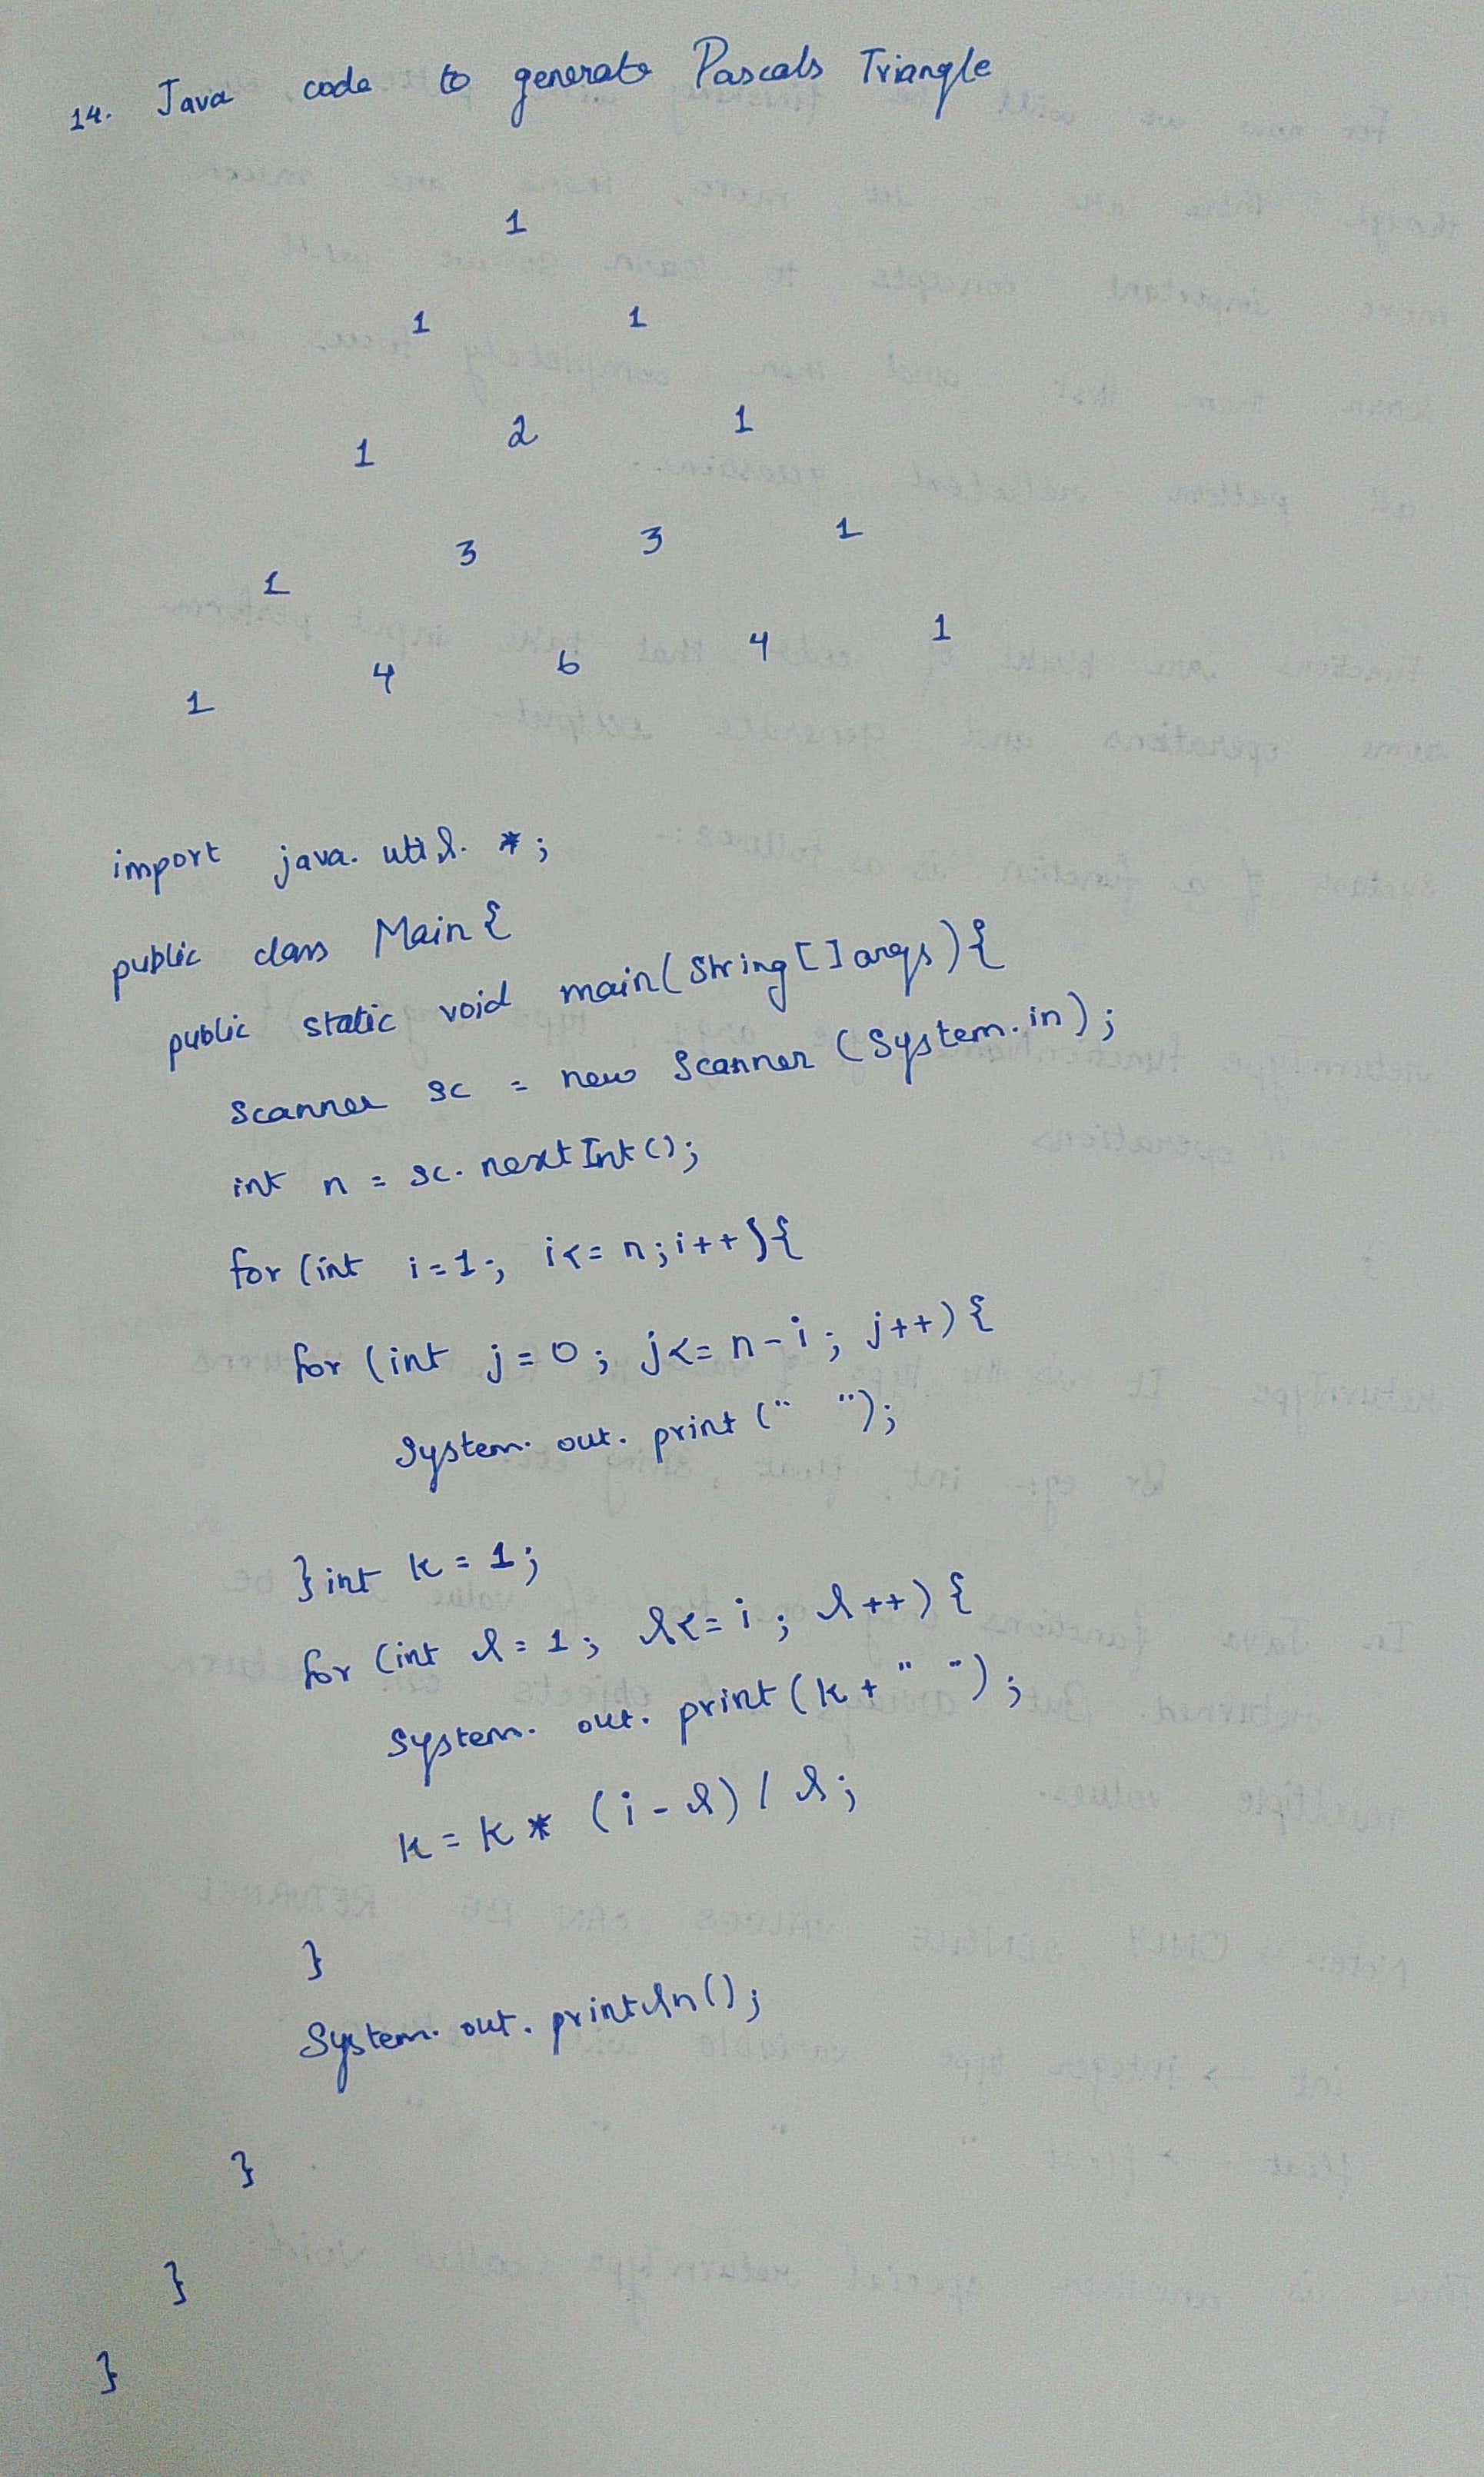 14. Java code to generate Pascals Triangle
1
1 1
1 2 1
1 3 3 1
1 4 6 4 1
import java.util.*;
public class Main{
public static void main(String[]args){
Scanner sc = new Scanner(System.in);
int n = sc.nextInt();
for(int i=1; i<=n;i++){
for(int j=0; j<=n-i; j++){
System.out.print(" ");
}int k=1;
for(int l=1; l<=i; l++){
System.out.print(k+" ");
k=k*(i-l)/l;
}
System.out.println();
}
}
}